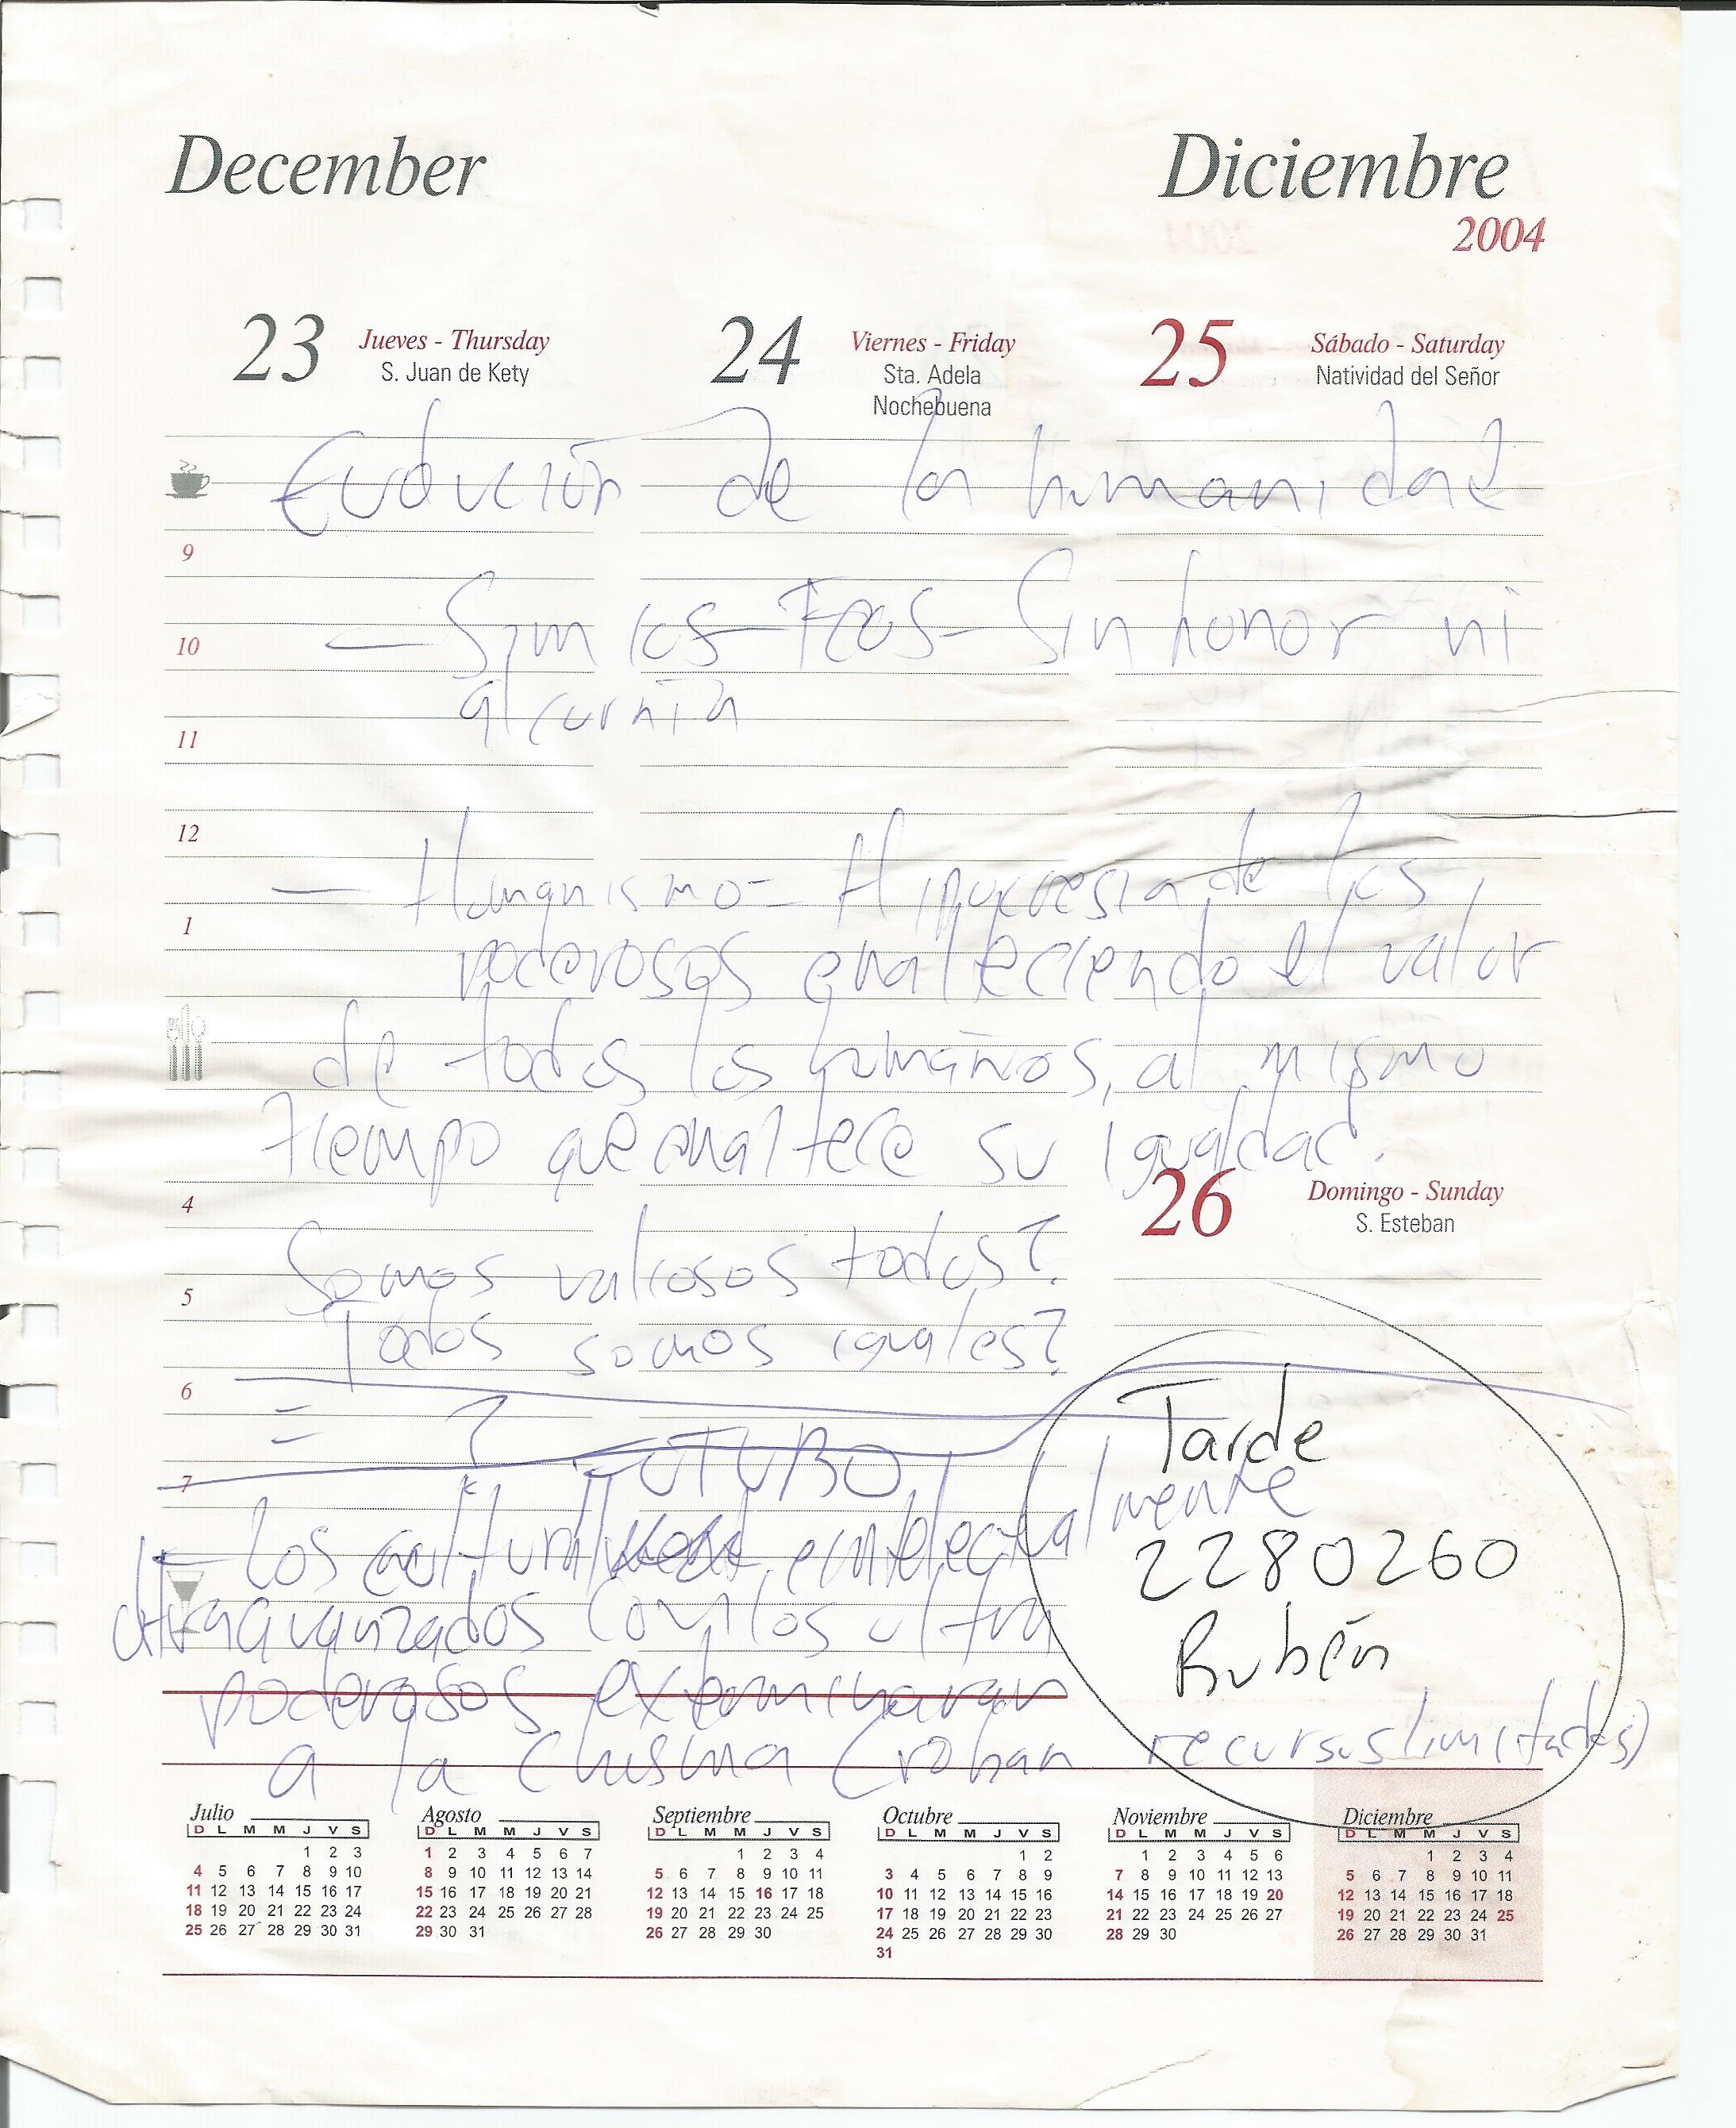 December
Diciembre
2004
23 Jueves - Thursday
S. Juan de Kety
24 Viernes - Friday
Sta. Adela
Nochebuena
25 Sábado - Saturday
Natividad del Señor
Evolución de la humanidad
9
— Simios - Feos - Sin honor ni
10
alcurnia
11
12
— Humanismo = Hipocresia de los
1
poderosos enalteciendo el valor
de todos los humanos, al mismo
tiempo que enaltece su igualdad.
26 Domingo - Sunday
S. Esteban
4
Somos valiosos todos?
5
Todos somos iguales?
6
= ?
FUTURO
7
— Los cultural e intelectualmente
ultraavanzados con los ultra
poderosos exterminaran
a la chusma (roban recursos limitados)
Tarde
2280260
Rubén
Julio
D L M M J V S
1 2 3
4 5 6 7 8 9 10
11 12 13 14 15 16 17
18 19 20 21 22 23 24
25 26 27 28 29 30 31
Agosto
D L M M J V S
1 2 3 4 5 6 7
8 9 10 11 12 13 14
15 16 17 18 19 20 21
22 23 24 25 26 27 28
29 30 31
Septiembre
D L M M J V S
1 2 3 4
5 6 7 8 9 10 11
12 13 14 15 16 17 18
19 20 21 22 23 24 25
26 27 28 29 30
Octubre
D L M M J V S
1 2
3 4 5 6 7 8 9
10 11 12 13 14 15 16
17 18 19 20 21 22 23
24 25 26 27 28 29 30
31
Noviembre
D L M M J V S
1 2 3 4 5 6
7 8 9 10 11 12 13
14 15 16 17 18 19 20
21 22 23 24 25 26 27
28 29 30
Diciembre
D L M M J V S
1 2 3 4
5 6 7 8 9 10 11
12 13 14 15 16 17 18
19 20 21 22 23 24 25
26 27 28 29 30 31